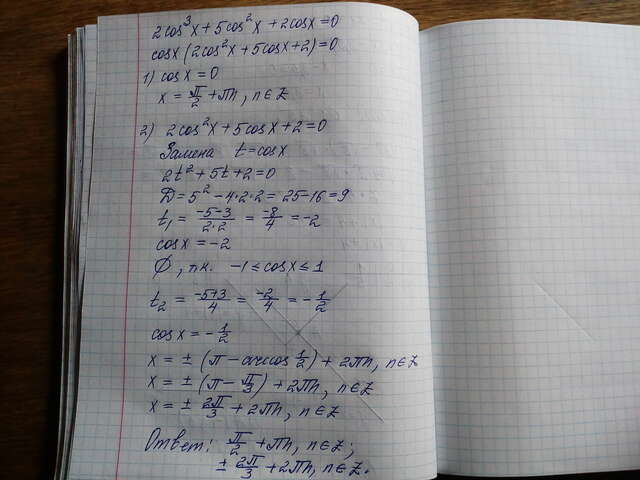 2cos³x + 5cos²x + 2cosx = 0
cosx (2cos²x + 5cosx + 2) = 0
1) cosx = 0
x = π/2 + πn, n∈Z
2) 2cos²x + 5cosx + 2 = 0
Замена t = cosx
2t² + 5t + 2 = 0
D = 5² - 4·2·2 = 25 - 16 = 9
t₁ = (-5-3)/(2·2) = -8/4 = -2
cosx = -2
∅, т.к. -1 ≤ cosx ≤ 1
t₂ = (-5+3)/4 = -2/4 = -1/2
cosx = -1/2
x = ± (π - arccos 1/2) + 2πn, n∈Z
x = ± (π - π/3) + 2πn, n∈Z
x = ± 2π/3 + 2πn, n∈Z
Ответ: π/2 + πn, n∈Z;
± 2π/3 + 2πn, n∈Z.